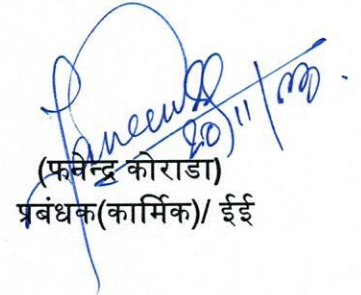 20/11/
(फवेन्द्र कोराडा)
प्रबंधक(कार्मिक)/ ईई